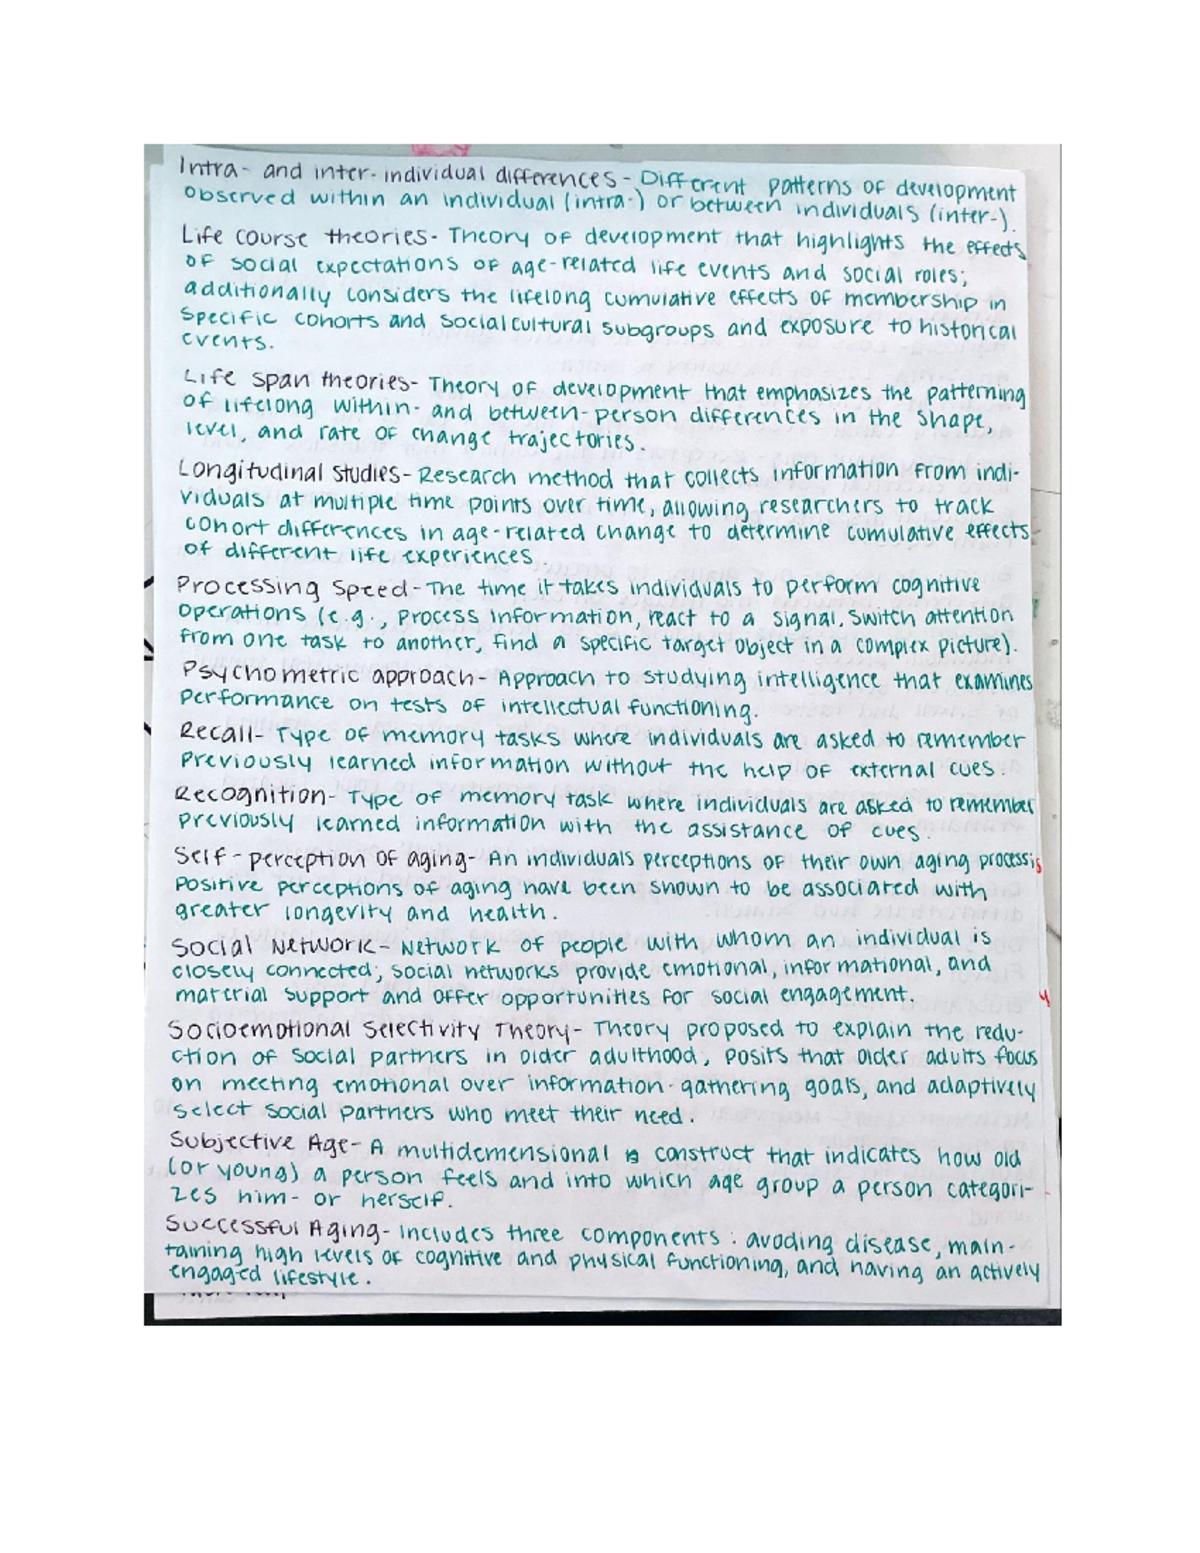 Intra- and inter-individual differences - Different patterns of development
observed within an individual (intra-) or between individuals (inter-).
Life course theories- Theory of development that highlights the effects
of social expectations of age-related life events and social roles;
additionally considers the lifelong cumulative effects of membership in
specific cohorts and socialcultural subgroups and exposure to historical
events.
Life span theories- Theory of development that emphasizes the patterning
of lifelong within- and between-person differences in the shape,
level, and rate of change trajectories.
Longitudinal studies- Research method that collects information from indi-
viduals at multiple time points over time, allowing researchers to track
cohort differences in age-related change to determine cumulative effects
of different life experiences.
Processing Speed- The time it takes individuals to perform cognitive
operations (e.g., process information, react to a signal, switch attention
from one task to another, find a specific target object in a complex picture).
Psychometric approach- Approach to studying intelligence that examines
performance on tests of intellectual functioning.
Recall- Type of memory tasks where individuals are asked to remember
previously learned information without the help of external cues.
Recognition- Type of memory task where individuals are asked to remember
previously learned information with the assistance of cues.
Self-perception of aging- An individuals perceptions of their own aging process;
positive perceptions of aging have been shown to be associated with
greater longevity and health.
Social Network- Network of people with whom an individual is
closely connected; social networks provide emotional, informational, and
material support and offer opportunities for social engagement.
Socioemotional Selectivity Theory- Theory proposed to explain the redu-
ction of social partners in older adulthood; posits that older adults focus
on meeting emotional over information-gathering goals, and adaptively
select social partners who meet their need.
Subjective Age- A multidemensional construct that indicates how old
(or young) a person feels and into which age group a person categori-
zes him- or herself.
Successful Aging- Includes three components: avoding disease, main-
taining high levels of cognitive and physical functioning, and having an actively
engaged lifestyle.